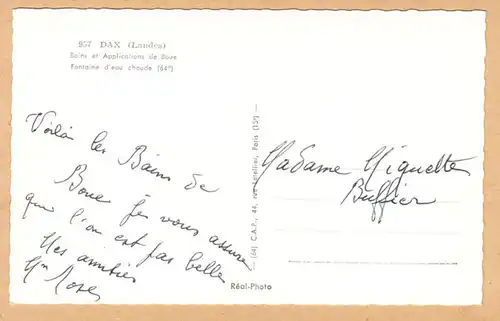 957 DAX (Landes)
Bains et Applications de Boue
Fontaine d'eau chaude (64º)
Voilà les Bains de
Boue je vous assure
que l'on est pas belle
Mes amitiés
Mme
Madame Miquette
Buffier
(64) C.A.P., 44, rue Letellier, Paris (15º)
Réal-Photo